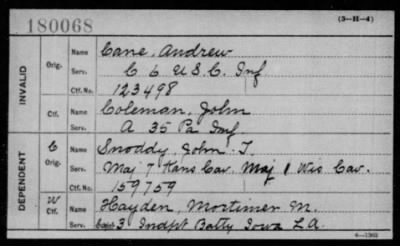 180068 (3-H-4)
INVALID
Orig. Name Cane, Andrew
Serv. C 6 U.S.C. Inf
Ctf. No. 123498
Ctf. Name Coleman, John
Serv. A 35 Pa Inf
DEPENDENT
C Orig. Name Snoddy, John T.
Serv. Maj 7 Kans Cav. Maj 1 Wis Cav.
Ctf. No. 159759
W Ctf. Name Hayden, Mortimer M.
Serv. Capt 3 Indpt Batty Iowa L A.